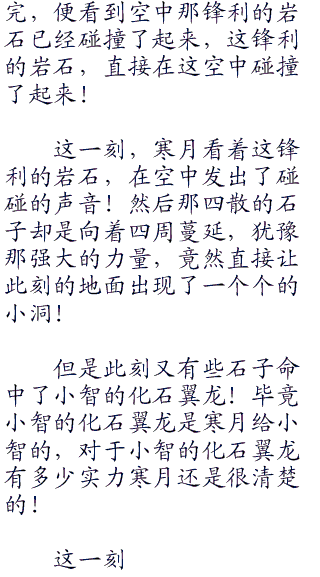 完，便看到空中那锋利的岩
石已经碰撞了起来，这锋利
的岩石，直接在这空中碰撞
了起来！
这一刻，寒月看着这锋
利的岩石，在空中发出了碰
碰的声音！然后那四散的石
子却是向着四周蔓延，犹豫
那强大的力量，竟然直接让
此刻的地面出现了一个个的
小洞！
但是此刻又有些石子命
中了小智的化石翼龙！毕竟
小智的化石翼龙是寒月给小
智的，对于小智的化石翼龙
有多少实力寒月还是很清楚
的！
这一刻